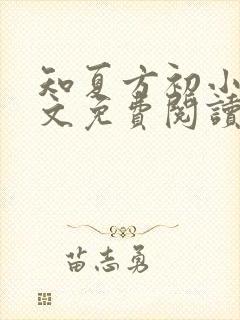 知夏方初小
文免費閱讀
苗志勇